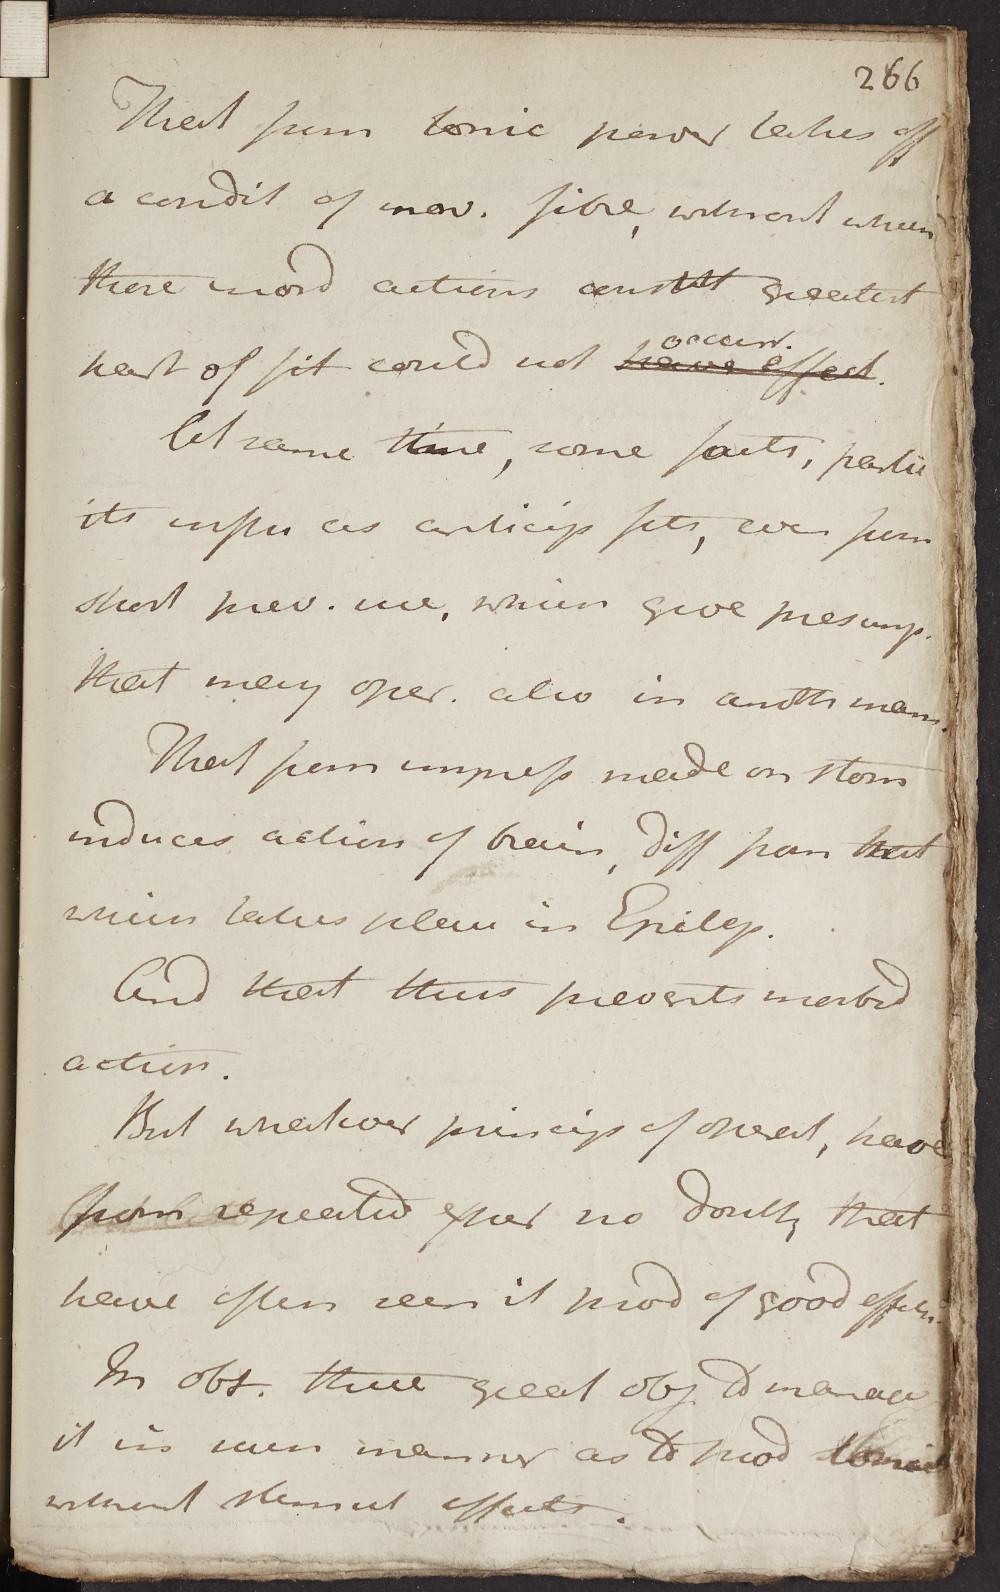 266
That from tonic power takes off
a condit of mov. fibre, without which
those morb actions constit greatest
part of fit could not have effect.
occur.
At same time, some facts, partic
its influ as anticip fits, even from
short prev. use, which give presump.
that may oper. also in anoth mann.
That from impress made on stom
induces action of brain, diff from that
which takes place in Epilep.
And that thus prevents morbid
action.
But whatever princip of operat, have
from repeated exper no doubt, that
have often seen it prod of good effects.
In obs. these great obj to manage
it in such manner as to prod tonic
without stimul effects.